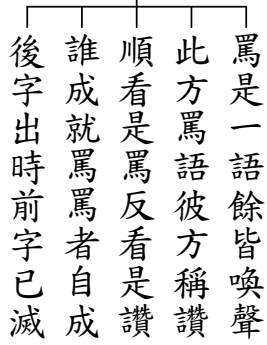 罵是一語餘皆喚聲
此方罵語彼方稱讚
順看是罵反看是讚
誰成就罵罵者自成
後字出時前字已滅